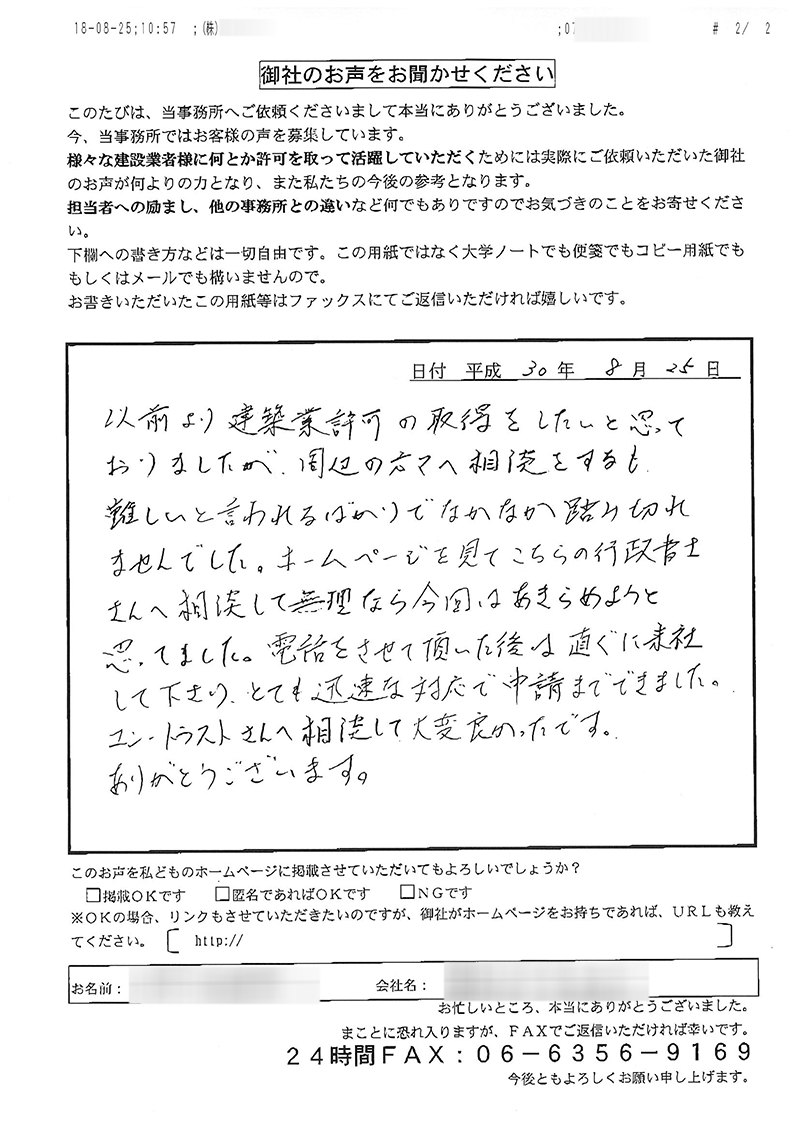 18-08-25;10:57 ;(株) ;07 # 2/ 2
御社のお声をお聞かせください
このたびは、当事務所へご依頼くださいまして本当にありがとうございました。
今、当事務所ではお客様の声を募集しています。
様々な建設業者様に何とか許可を取って活躍していただくためには実際にご依頼いただいた御社
のお声が何よりの力となり、また私たちの今後の参考となります。
担当者への励まし、他の事務所との違いなど何でもありですのでお気づきのことをお寄せくださ
い。
下欄への書き方などは一切自由です。この用紙ではなく大学ノートでも便箋でもコピー用紙でも
もしくはメールでも構いませんので。
お書きいただいたこの用紙等はファックスにてご返信いただければ嬉しいです。
日付 平成 30年 8月 25日
以前より建築業許可の取得をしたいと思って
おりましたが、周辺の方々へ相談をするも
難しいと言われるばかりでなかなか踏み切れ
ませんでした。ホームページを見てこちらの行政書士
さんへ相談して無理なら今回はあきらめようと
思ってました。電話をさせて頂いた後は直ぐに来社
して下さり、とても迅速な対応で申請までできました。
コントラストさんへ相談して大変良かったです。
ありがとうございます。
このお声を私どものホームページに掲載させていただいてもよろしいでしょうか?
□掲載OKです □匿名であればOKです □NGです
※OKの場合、リンクもさせていただきたいのですが、御社がホームページをお持ちであれば、URLも教え
てください。 [ http:// ]
お名前: 会社名:
お忙しいところ、本当にありがとうございました。
まことに恐れ入りますが、FAXでご返信いただければ幸いです。
24時間FAX:06-6356-9169
今後ともよろしくお願い申し上げます。